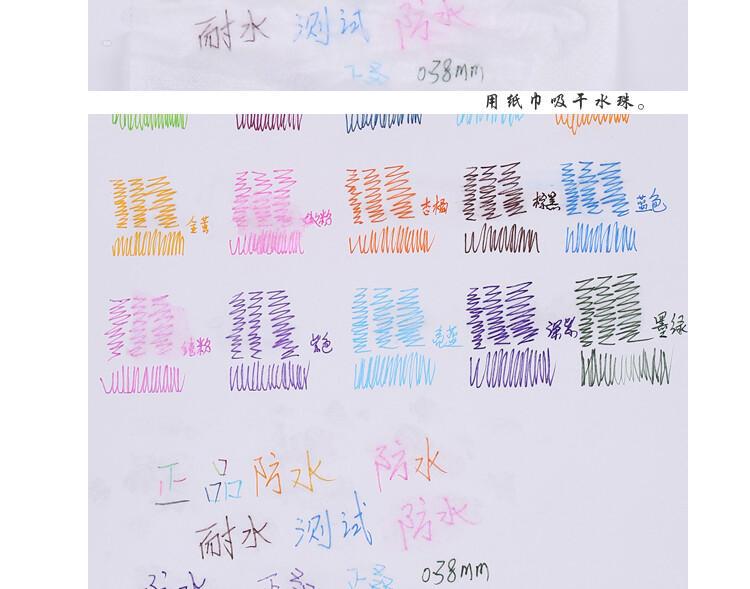 耐水 测试 防水
正品 038mm
用纸巾吸干水珠。
金黄 纯粉 杏橘 棕黑 蓝色
纯粉 紫色 亮蓝 深紫 墨绿
正品防水 防水
耐水 测试 防水
防水 正品 正品 038mm